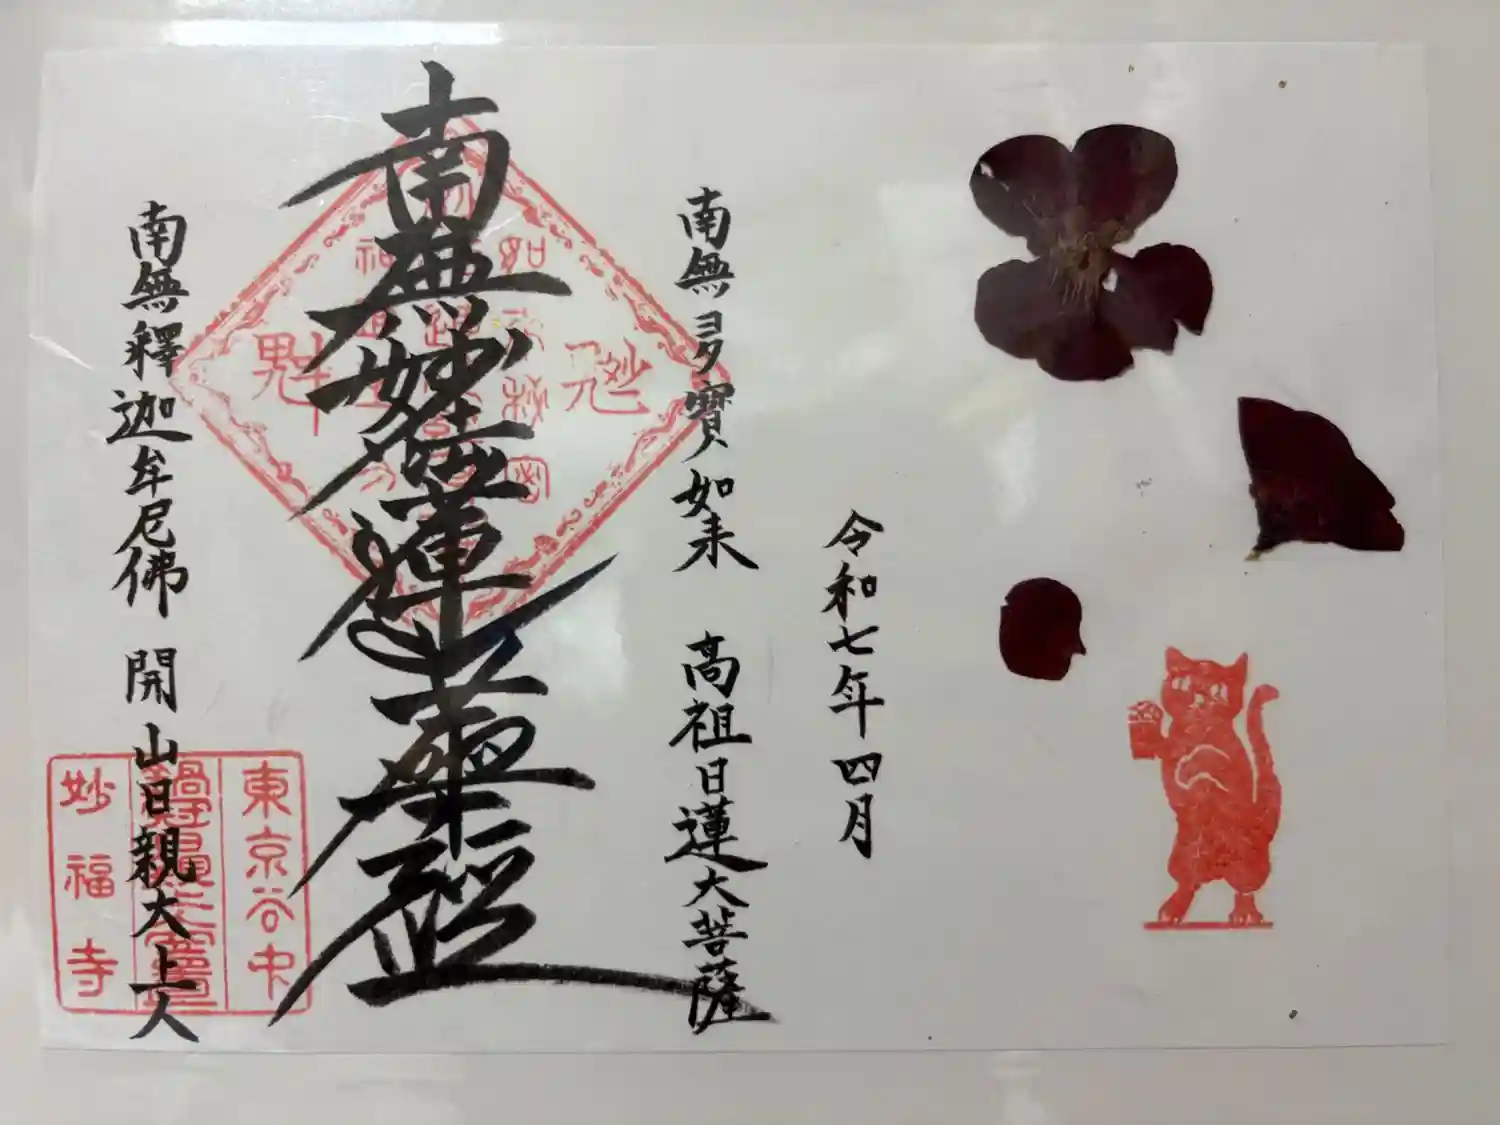 令和七年四月
南無多寶如来 高祖日蓮大菩薩
南無妙法蓮華經
南無釋迦牟尼佛 開山日親大上人
東京谷中
妙福寺